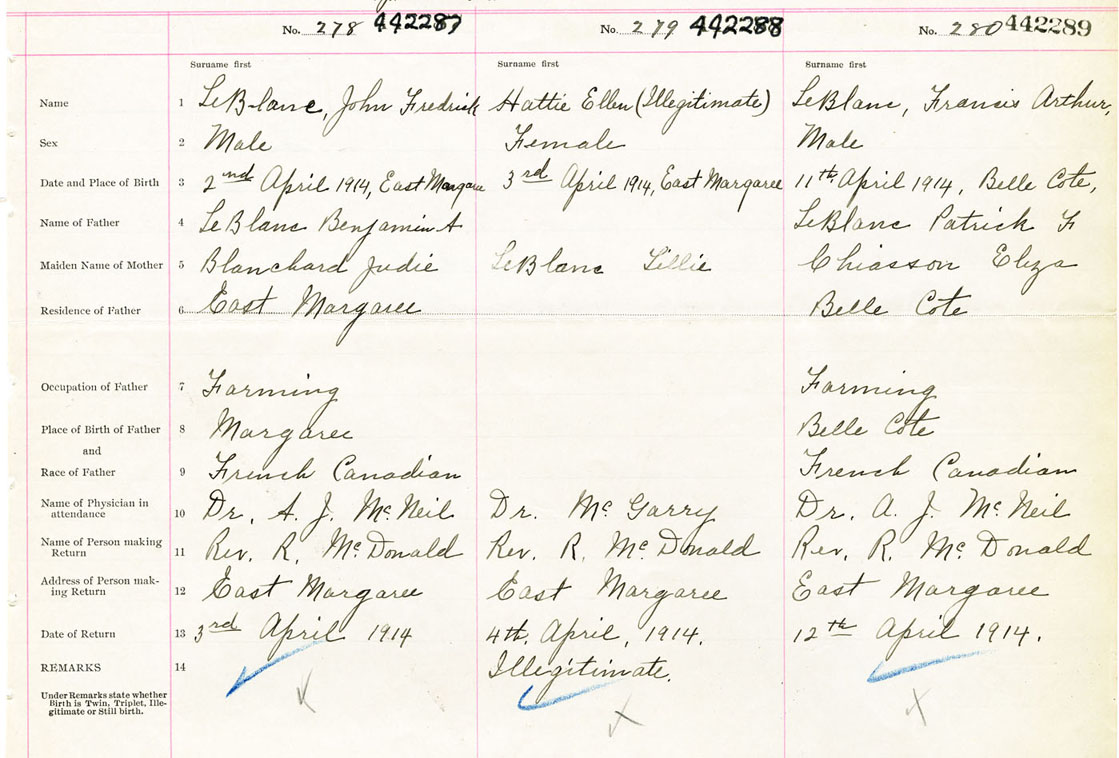 No. 278 442287 No. 279 442288 No. 280 442289
Surname first Surname first Surname first
Name 1 LeBlanc, John Fredrick Hattie Ellen (Illegitimate) LeBlanc, Francis Arthur,
Sex 2 Male Female Male
Date and Place of Birth 3 2nd April 1914, East Margaree 3rd April 1914, East Margaree 11th April 1914, Belle Cote,
Name of Father 4 LeBlanc Benjamin A LeBlanc Patrick F
Maiden Name of Mother 5 Blanchard Judie LeBlanc Lillie Chiasson Eliza
Residence of Father 6 East Margaree Belle Cote
Occupation of Father 7 Farming Farming
Place of Birth of Father 8 Margaree Belle Cote
and
Race of Father 9 French Canadian French Canadian
Name of Physician in
attendance 10 Dr. A. J. McNeil Dr. McGarry Dr. A. J. McNeil
Name of Person making
Return 11 Rev. R. McDonald Rev. R. McDonald Rev. R. McDonald
Address of Person mak-
ing Return 12 East Margaree East Margaree East Margaree
Date of Return 13 3rd April 1914 4th, April, 1914. 12th April 1914.
REMARKS 14 Illegitimate.
Under Remarks state whether
Birth is Twin, Triplet, Ille-
gitimate or Still birth.